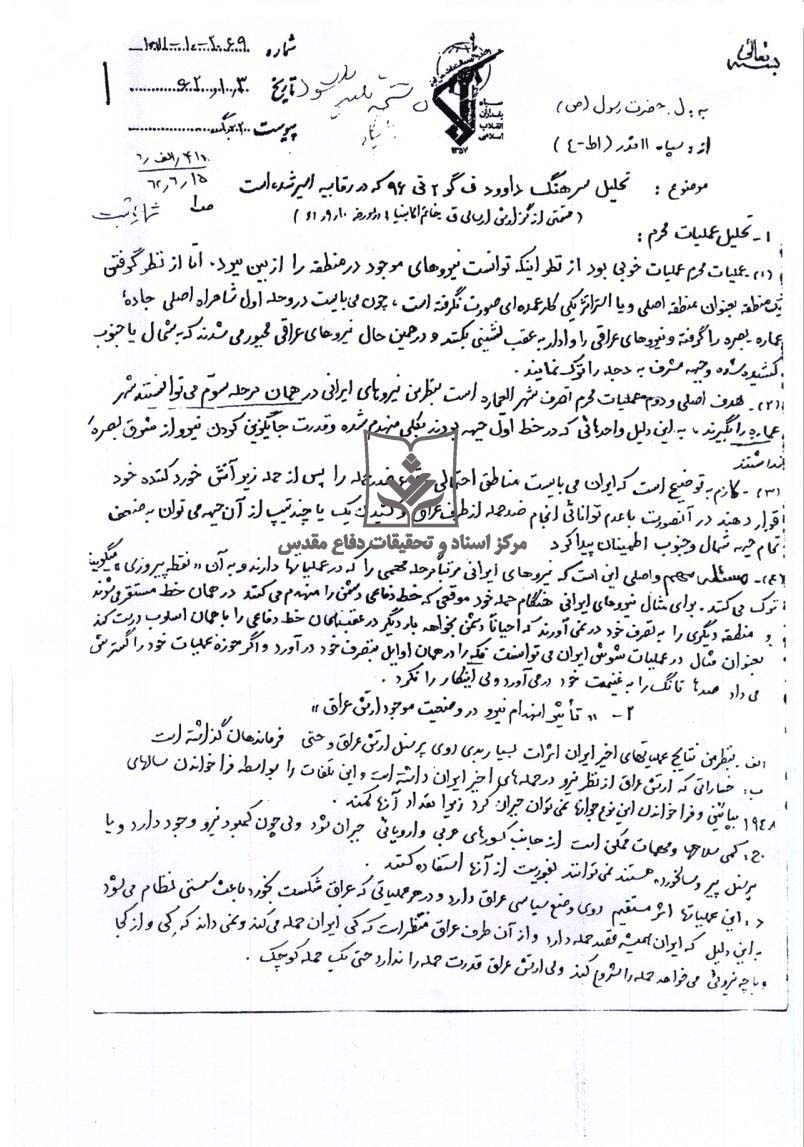 بسمه تعالی
شماره ۱۰۵۸۱-۱۰-۲۰۶۹
تاریخ ۶۲/۱۰/۳
پیوست ۲ برگ
سپاه
پاسداران
انقلاب
اسلامی
۱۳۵۷
به: ل. حضرت رسول (ص)
از: سپاه ۱۱ قدر (اط-٤)
۶۲/۶/۱۵
موضوع: تحلیل سرهنگ داوود ف گو ۲ تی ۹۶ که در رقابیه اسیر شده است
(قسمتی از گزارش ارسالی ق. خاتم الانبیاء مورخه ۶۱/۹/۱۰)
۱- تحلیل عملیات محرم:
(۱)- عملیات محرم عملیات خوبی بود از نظر اینکه توانست نیروهای موجود در منطقه را از بین ببرد. اما از نظر گرفتن
یک منطقه بعنوان منطقه اصلی و یا استراتژیکی کار عمده ای صورت نگرفته است، چون می بایست در وحله اول شاهراه اصلی جادهٔ
عماره بصره را گرفته و نیروهای عراقی را وادار به عقب نشینی بکند و در همین حال نیروهای عراقی مجبور می شدند که به شمال یا جنوب
کشیده شده و جبهه مشرف به دجله را ترک نمایند.
(۲)- هدف اصلی و دوم عملیات محرم تصرف شهر العماره است بنظر من نیروهای ایرانی در همان مرحله سوم می توانستند شهر
عماره را بگیرند، به این دلیل واحدهائی که در خط اول جبهه بودند بکلی منهدم شده و قدرت جایگزین کردن نیرو از شرق بصره را
نداشتند
(۳)- لازم به توضیح است که ایران می بایست مناطق احتمالی ضد حمله را پس از حمله زیر آتش خورد کننده خود
قرار دهند در آنصورت با عدم توانائی انجام ضد حمله از طرف عراق و کشیدن یک یا چند تیپ از آن جبهه می توان به ضعف
تمام جبهه شمال و جنوب اطمینان پیدا کرد
مرکز اسناد و تحقیقات دفاع مقدس
(٤)- مسئله مهم و اصلی این است که نیروهای ایرانی مرتباً مرحله مهمی را که در عملیاتها دارند و به آن «نقطه پیروزی» میگویند
ترک می کنند. برای مثال نیروهای ایرانی هنگام حمله خود موقعی که خط دفاعی دشمن را منهدم می کنند در همان خط مستقر می شوند
و منطقه دیگری را به تصرف خود در نمی آورند که احیاناً دشمن بخواهد بار دیگر در عقب همان خط دفاعی را با همان اسلوب درست کند
بعنوان مثال در عملیات شوش ایران می توانست فکه را در همان اوایل بتصرف خود در آورد و اگر حوزه عملیات خود را گسترش
می داد صدها تانگ را به غنیمت خود در می آورد ولی اینکار را نکرد.
۲- «تأثیر انهدام نیرو در وضعیت موجود ارتش عراق»
الف- بنظر من نتایج عملیاتهای اخیر ایران اثرات بسیار بدی روی پرسنل ارتش عراق و حتی فرماندهان گذاشته است
ب: خساراتی که ارتش عراق از نظر نیرو در حمله های اخیر ایران داشته است و این تلفات را بواسطه فراخواندن سالهای
۱۹٤۸ بپائینی و فراخواندن این نوع جوانها نمی توان جبران کرد زیرا تعداد آنها کمند.
ج: کمی سلاحها و مهمات ممکن است از جانب کشورهای عربی و اروپائی جبران شود ولی چون کمبود نیرو وجود دارد و یا
پرسنل پیر و سالخورده هستند نمی توانند بفوریت از آنها استفاده کنند.
د: این عملیاتها اثر مستقیم روی وضع سیاسی عراق دارد و در هر عملیاتی که عراق شکست بخورد باعث سستی نظام می شود
به این دلیل که ایران همیشه قصد حمله دارد و از آن طرف عراق منتظر است که کی ایران حمله می کند و نمی داند که کی و از کجا
و با چه نیروئی می خواهد حمله را شروع کند ولی ارتش عراق قدرت حمله را ندارد حتی یک حمله کوچک.